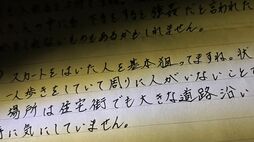 下さをすると強姦だと言われた
ものもあるかもしれません。
スカートをはいた人を基本狙ってますね。状
一人歩きをしていて周りに人がいないこと
場所は住宅街でも大きな道路沿い
気にしていません。